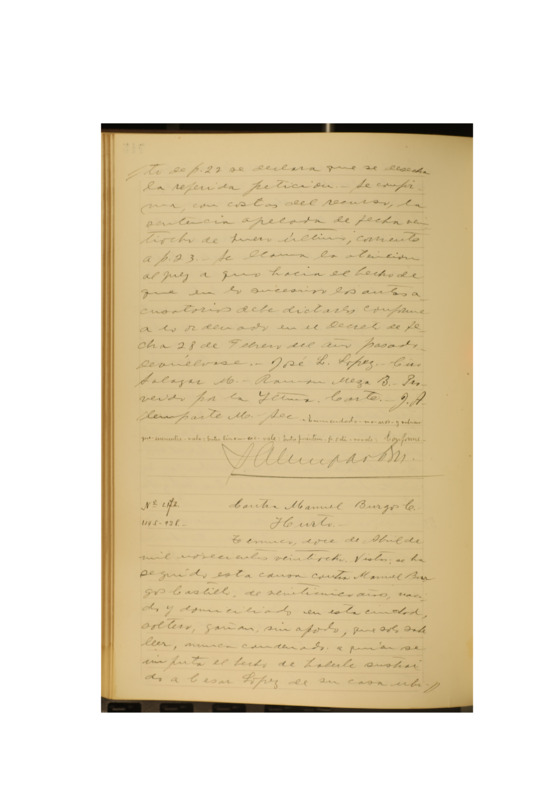 to de f. 22 se declara que se desecha
la referida petición.- Se confir-
ma, con costas del recurso, la
sentencia apelada de fecha vein
tiocho de Enero último, corriente
a f. 23.- Se llama la atención
al juez a quo hacia el hecho de
que en lo sucesivo los autos a-
cusatorios debe dictarlos conforme
a lo ordenado en el Decreto de fe-
cha 28 de Febrero del año pasado.
Devuélvase.- José L. Lopez.- Luis
Salazar M.- Ramon Meza B.- Pro-
veido por la Iltma. Corte.- J. A.
Sec.
Conforme.-
Nº
Contra Manuel Burgos C.
Hurto.-
Temuco, doce de Abril de
mil novecientos veintiocho. Vistos: se ha
seguido esta causa contra Manuel Bur-
gos Castillo, de veintinueve años, naci-
do y domiciliado en esta ciudad,
soltero, gañan, sin apodo, que solo sabe
leer, nunca condenado, a quien se
imputa el hecho de haberle sustraí-
do a Cesar López de su casa ubi-